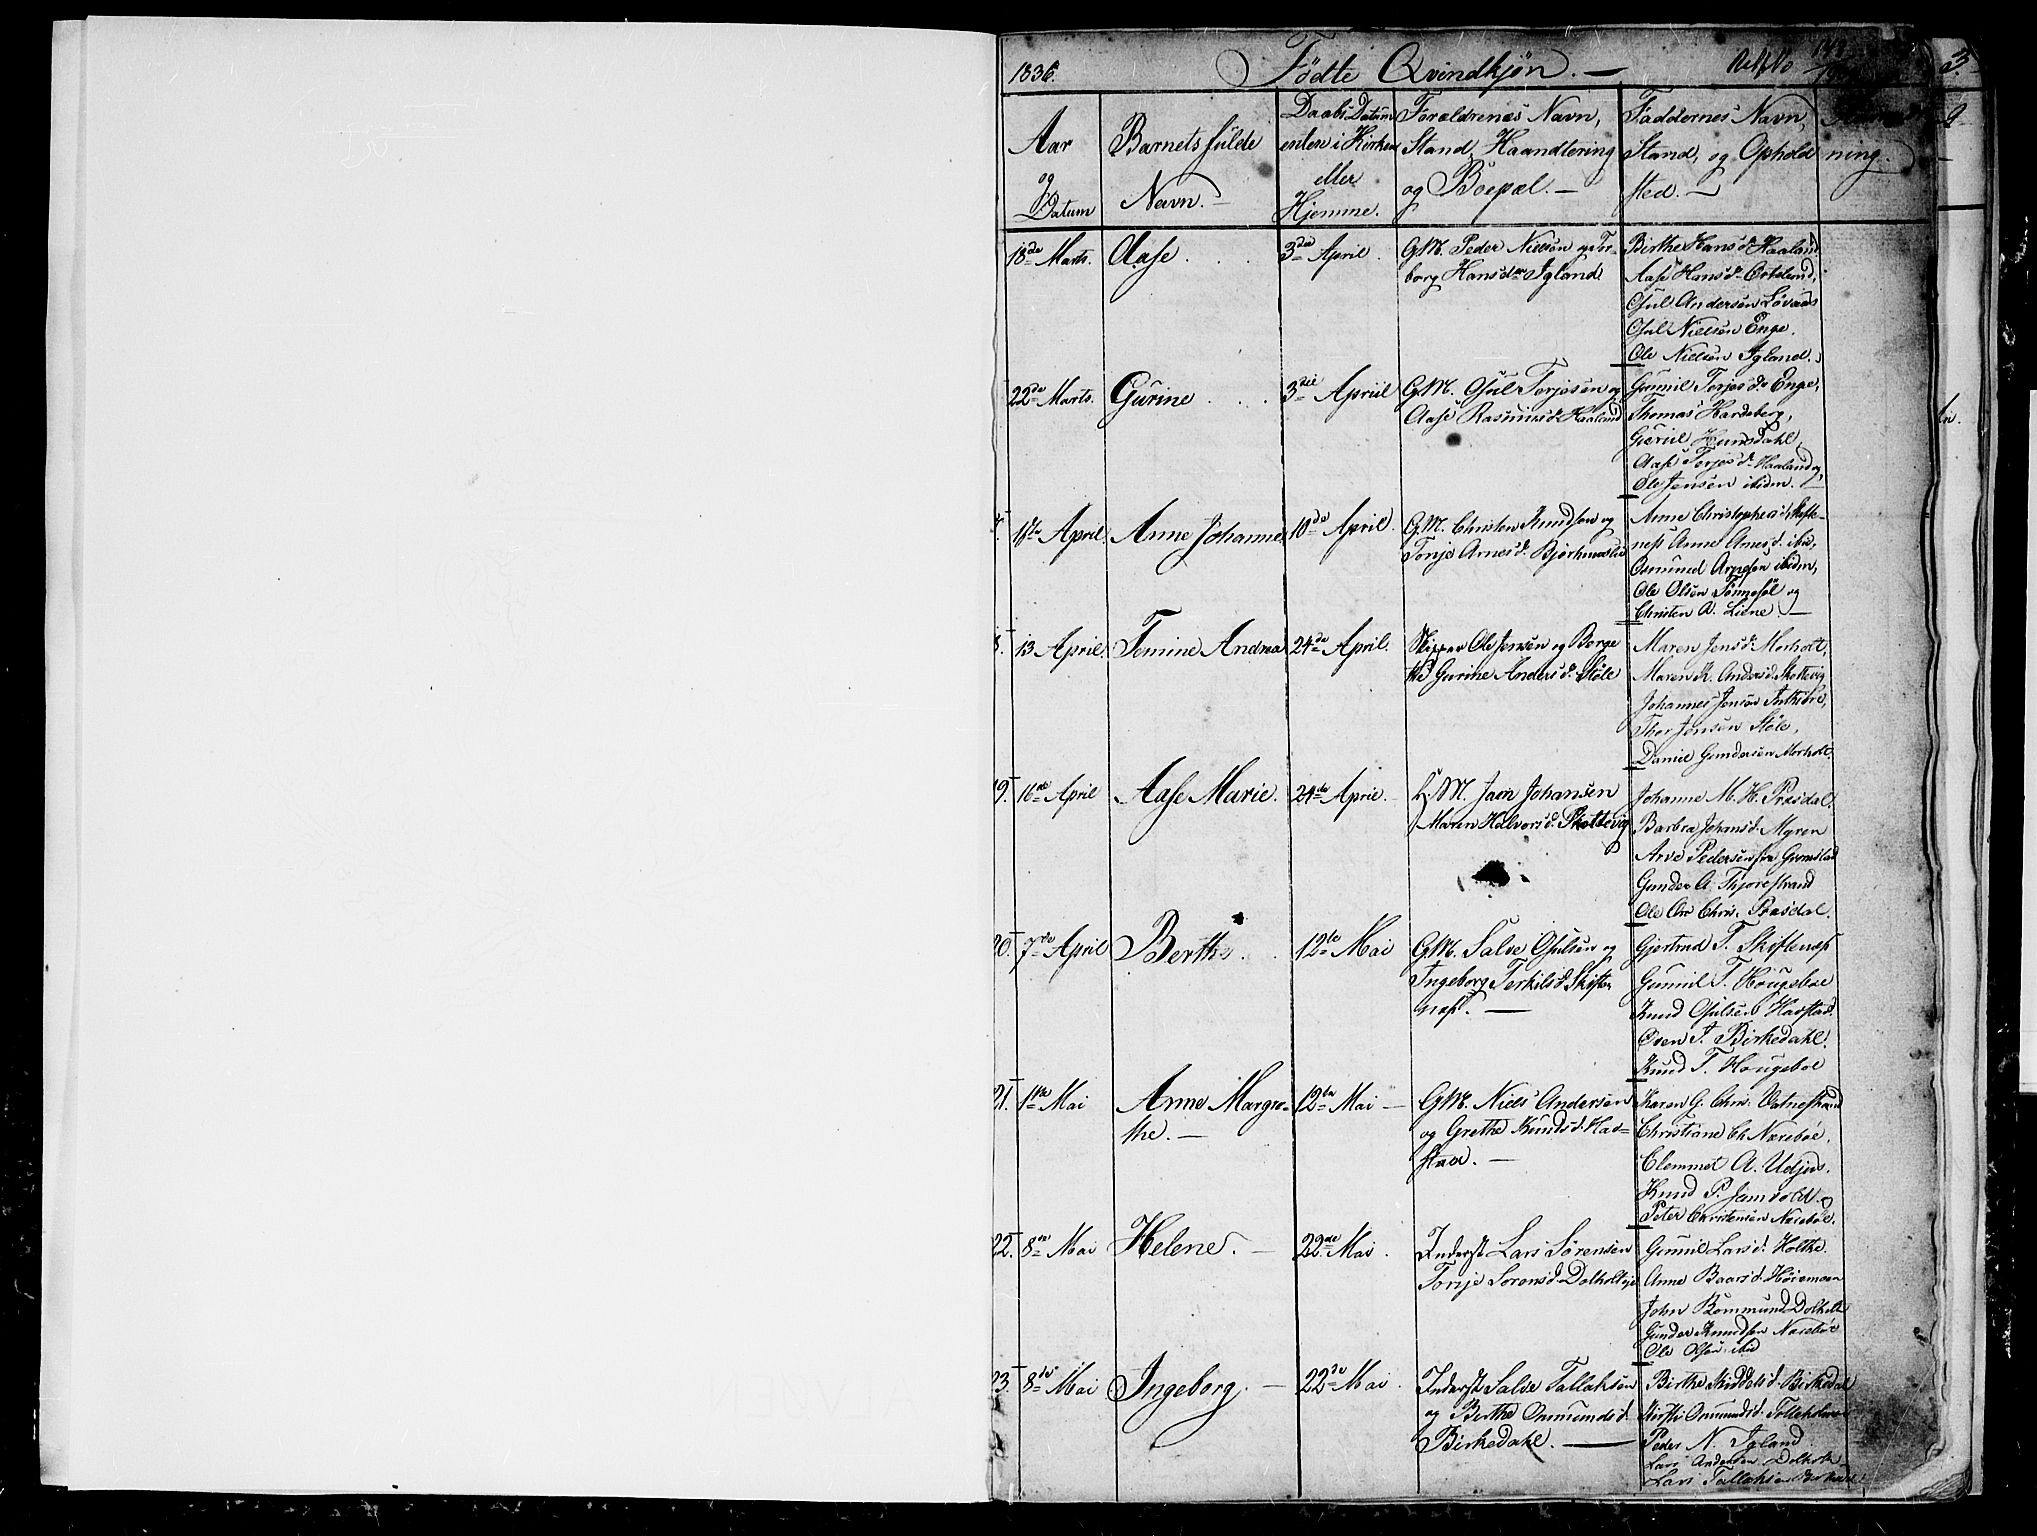 1836. Födte Qvindkjön. —
3
Aar og Datum
Barnets fulde Navn. —
Daabs Datum enten i Kirken eller Hjemme.
Forældrenes Navn, Stand, Haandtering og Boepæl. —
Faddernes Navn, Stand, og Ophold sted. —
ning.
18de Marts. Aase 3die April. G.M. Peder Nielsen og Tor-
borg Hansdr Igland
Birthe Hansd. Haaland
Aase Hansd.
Osul Andersen Løvaas
Osul Nielsen Enge.
Ole Nielsen Igland.
22de Marts. Gurine 3die Apriil G.M. Osul Terjesen og
Aase Rasmusd. Haaland
Gunnil Terjesd. Enge,
Thomas Hardeberg,
Guruil Hunsdahl,
Aase Terjesd. Haaland og
Ole Jensen ibidm.
April. Anne Johanne 10de April. G.M. Christen Knudsen og
Tonje Arnesd.
Anne Christophersd. Skifte-
næs Anne Arnesd. ibid,
Osmund Arnesen ibidm,
Ole Olsen Tønnesøl og
Christen A. Liene
13 April. Temine Andrea 24de April. Skipper Ole Jensen og Borge
Gurine Andersd. Støle
Maren Jensd. Morholt,
Maren K. Andersd. Skottevig
Johannes Jensen
Thor Jensen Støle,
Daniel Gundersen Morholt.
19. 16de April Aase Marie. 24de April. — H.M. Jørn Johansen
Maren Halvorsd. Skottevig
Johanne M. H. Præsdal.
Barbra Johansd. Myren
Arve Pedersen fra Grimstad
Gunder A. Fhjorestrand
Ole Chr. Præsdal.
20. 7de April Berthe. 12te Mai G.M. Salve Osulsen og
Ingeborg Terkilsd. Skifte-
næs. —
Gjertrud T. Skiftenæs
Gunnil T. Hougeboe
Knud Osulsen Havstad.
Oven T. Birkedahl.
Knud T. Hougeboe
21. 1ste Mai Anne Margre-
the. —
12te Mai — G.M. Niels Andersen
og Grethe Knudsd. Hav-
stad. —
Karen G. Chr. Vatnestrand
Christiane Ch. Næreboe,
Clemmet A. Udjus.
Knud P. Jamsold. og
Peter Christensen Næreboe.
22. 8de Mai Helene. — 22de Mai. Inderst Lars Sørensen
Tonje Sorensd. Dolholt
Gunnil Larsd. Holthe.
Anne Baarsd. Høiemoen
John Rommund Dolholt
Gunder Knudsen Næreboe
Ole Olsen ibid
23. 8de Mai Ingeborg. — 22de Mai. Inderst Salve Tallaksen
og Berthe Ommundsd.
Birkedahl. —
Birthe Birkedal
Kirsti Osmundsd.
Peder N. Igland
Lars Andersen Dolholt
Lars Tallaksen Birkedal